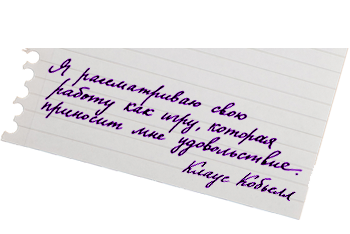 Я рассматриваю свою
работу как игру, которая
приносит мне удовольствие.
Клаус Кобьелл